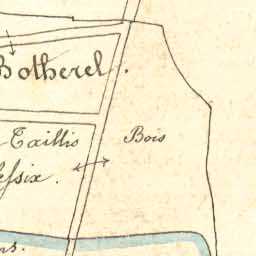 Botherel.
Taillis Bois
essix.
ns.